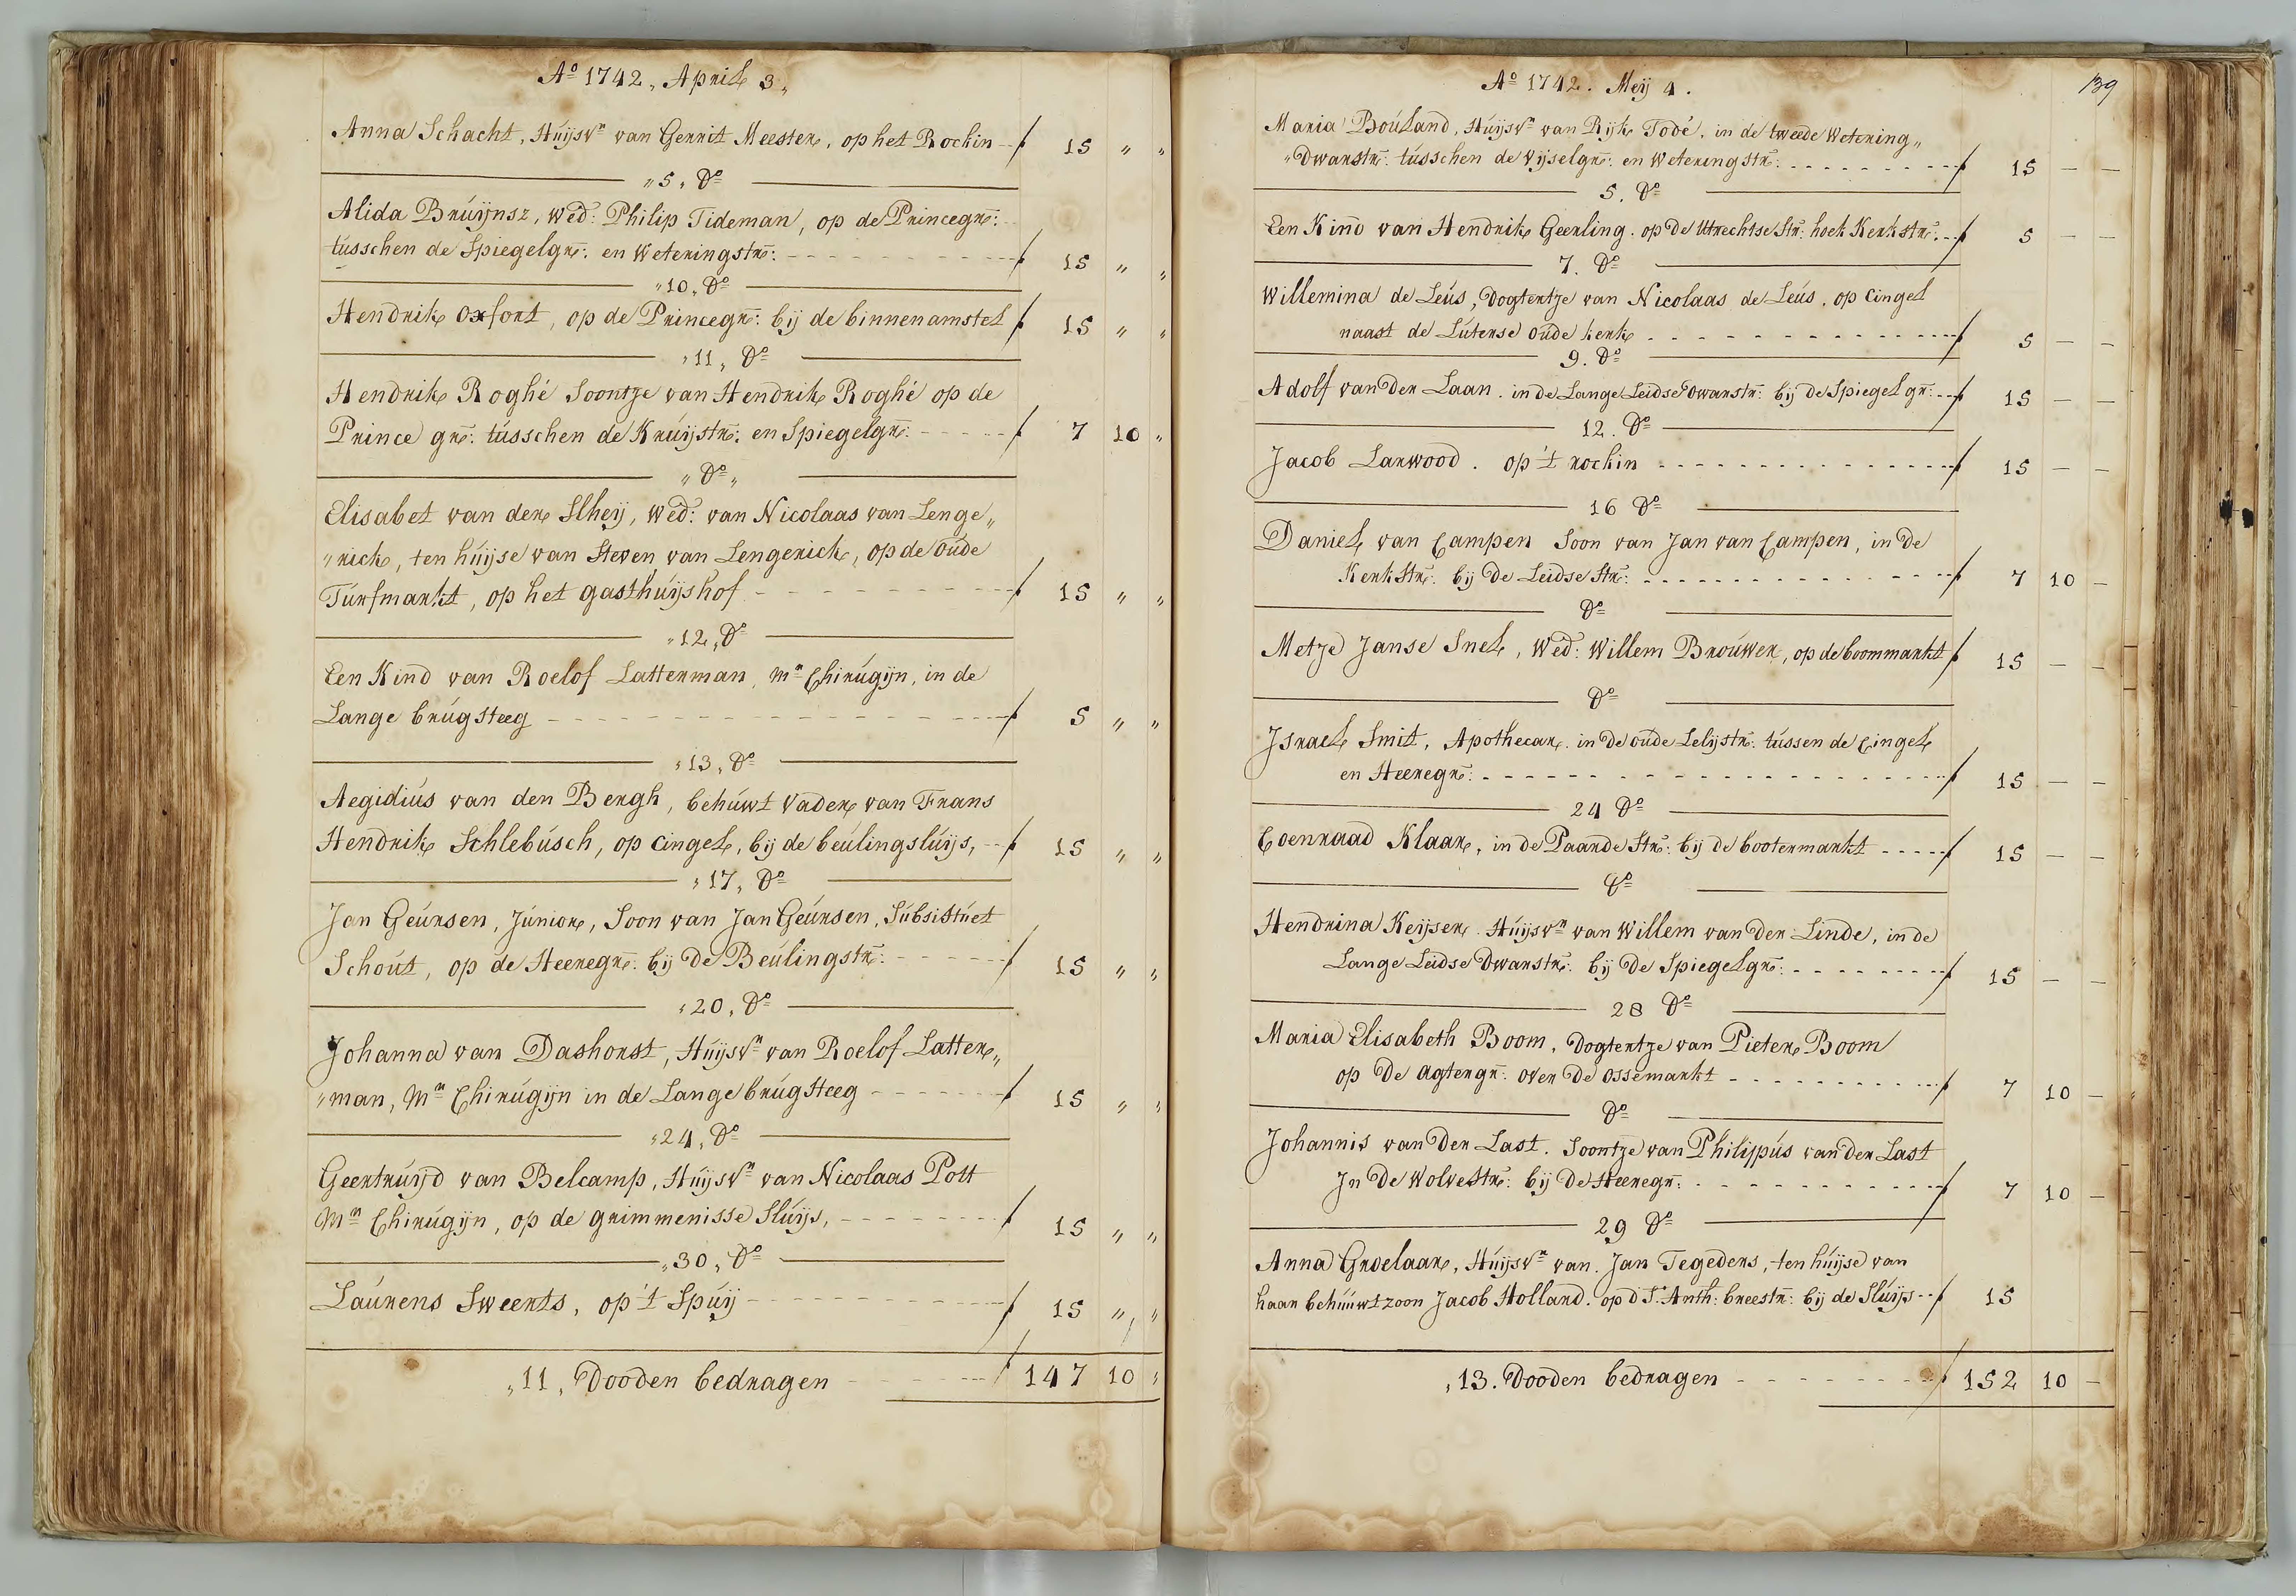 Ao 1742, April 3,
Anna Schacht, Huijsvr van Gerrit Meester, op het Rockin -- f 15 " "
"5, Do
Alida Bruijnsz, Wed: Philip Tideman, op de Princegr:
tusschen de Spiegelgr: en Weteringstr: - - - f 15 " "
"10, Do
Hendrik Oxfort, op de Princegr: bij de binnenamstel f 15 " "
"11, Do
Hendrik Roghé Soontje van Hendrik Roghé op de
Prince gr: tusschen de Kruijstr: en Spiegelgr: - - - f 7 10 "
" Do "
Elisabet van der Slheij, Wed: van Nicolaas van Lenge"
"rick, ten huijse van Steven van Lengerick, op de Oude
Turfmarkt, op het gasthuijshof - - - f 15 " "
"12, Do
Een Kind van Roelof Latterman, Mr Chirugijn, in de
Lange brugsteeg - - - f 5 " "
"13, Do
Aegidius van den Bergh, behuwt Vader van Frans
Hendrik Schlebusch, op Cingel, bij de beulingsluijs, -- f 15 " "
"17, Do
Jan Geursen, Junior, Soon van Jan Geursen, Subsistuet
Schout, op de Heeregr: bij De Beulingstr: - - - f 15 " "
"20, Do
Johanna van Dashorst, Huijsvr van Roelof Latter"
"man, Mr Chirugijn in de Lange brugsteeg - - - f 15 " "
"24, Do
Geertruijd van Belcamp, Huijsvr van Nicolaas Pott
Mr Chirugijn, op de grimmenisse Sluijs, - - - f 15 " "
"30, Do
Laurens Sweerts, op 't Spuij - - - f 15 " "
"11, Dooden bedragen - - - f 147 10 "
139
Ao 1742. Meij 4.
Maria Bouland, Huijsvr van Rijk Todé, in de tweede Wetering"
"Dwarstr: tusschen de Vijselgr: en Weteringstr: - - - f 15 — —
5. Do
Een Kind van Hendrik Geerling. op De Utrechtse Str: hoek Kerkstr: -- f 5 — —
7. Do
Willemina de Leus, Dogtertje van Nicolaas de Leus, op Cingel
naast de Luterse Oude kerk - - - f 5 — —
9. Do
Adolf van Der Laan. in de Lange Leidse Dwarstr: bij de Spiegel gr: -- f 15 — —
12. Do
Jacob Larwood. op 't rockin - - - f 15 — —
16 Do
Daniel van Campen Soon van Jan van Campen, in De
Kerk Str: bij De Leidse Str: - - - f 7 10 —
Do
Metje Janse Snel, Wed: Willem Brouwer, op de boommarkt f 15 — —
Do
Israel Smit, Apothecar. in De Oude Lelijstr: tussen de Cingel
en Heeregr: - - - f 15 — —
24 Do
Coenraad Klaar, in de Paarde Str: bij de bootermarkt - - - f 15 — —
Do
Hendrina Keijser. Huijsvr van Willem van Der Linde, in de
Lange Leidse Dwarstr: bij De Spiegelgr: - - - f 15 — —
28 Do
Maria Elisabeth Boom, Dogtertje van Pieter Boom
op De Agtergr: over De Ossemarkt - - - f 7 10 —
Do
Johannis van Der Last. Soontje van Philippus van Der Last
In De Wolvestr: bij De Heeregr: - - - f 7 10 —
29 Do
Anna Groelaar, Huijsvr van Jan Tegeders, ten huijse van
haar behuuwtzoon Jacob Holland. op d' St. Anth: breestr: bij de Sluijs -- f 15
, 13. Dooden bedragen - - - f 152 10 —